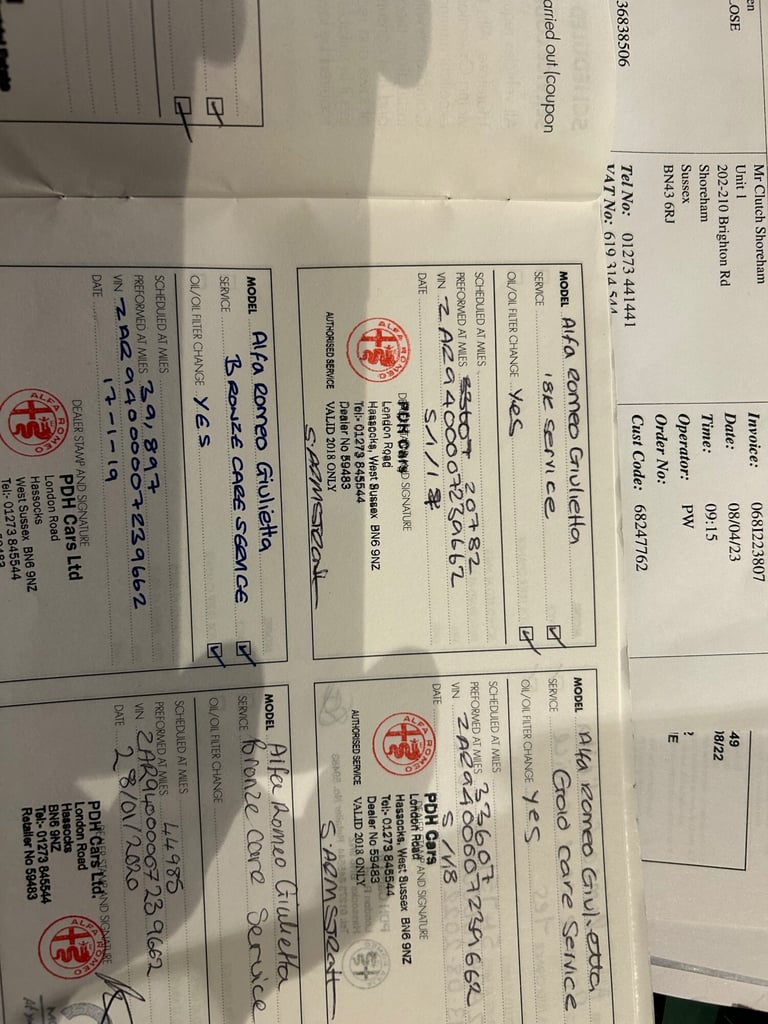 arried out (coupon
LOSE
36838506
Mr Clutch Shoreham
Unit 1
202-210 Brighton Rd
Shoreham
Sussex
BN43 6RJ
Tel No: 01273 441441
VAT No: 619 314 544
Invoice: 0681223807
Date: 08/04/23
Time: 09:15
Operator: PW
Order No:
Cust Code: 68247762
49
18/22
?
'E
MODEL Alfa Romeo Giulietta
SERVICE 18K Service
OIL/OIL FILTER CHANGE Yes
SCHEDULED AT MILES
PREFORMED AT MILES 20782
VIN ZAR94000007239662
DATE 5/1/18
DEALER STAMP AND SIGNATURE
PDH Cars
London Road
Hassocks, West Sussex BN6 9NZ
Tel:- 01273 845544
Dealer No 59483
ALFA ROMEO
AUTHORISED SERVICE VALID 2018 ONLY
S. ARMSTRONG
MODEL Alfa Romeo Giulietta
SERVICE Gold Care Service
OIL/OIL FILTER CHANGE Yes
SCHEDULED AT MILES
PREFORMED AT MILES 33607
VIN ZAR94000007239662
DATE
DEALER STAMP AND SIGNATURE
PDH Cars
London Road
Hassocks, West Sussex BN6 9NZ
Tel:- 01273 845544
Dealer No 59483
ALFA ROMEO
AUTHORISED SERVICE VALID 2018 ONLY
MODEL Alfa Romeo Giulietta
SERVICE BRONZE CARE SERVICE
OIL/OIL FILTER CHANGE YES
SCHEDULED AT MILES
PREFORMED AT MILES 39,897
VIN ZAR94000007239662
DATE 17-1-19
DEALER STAMP AND SIGNATURE
PDH Cars Ltd
London Road
Hassocks
West Sussex BN6 9NZ
Tel:- 01273 845544
ALFA ROMEO
MODEL Alfa Romeo Giulietta
SERVICE Bronze Care Service
OIL/OIL FILTER CHANGE
SCHEDULED AT MILES
PREFORMED AT MILES 44985
VIN ZAR94000007239662
DATE 28/01/2020
DEALER STAMP AND SIGNATURE
PDH Cars Ltd.
London Road
Hassocks
BN6 9NZ
Tel:- 01273 845544
Retailer No 59483
ALFA ROMEO